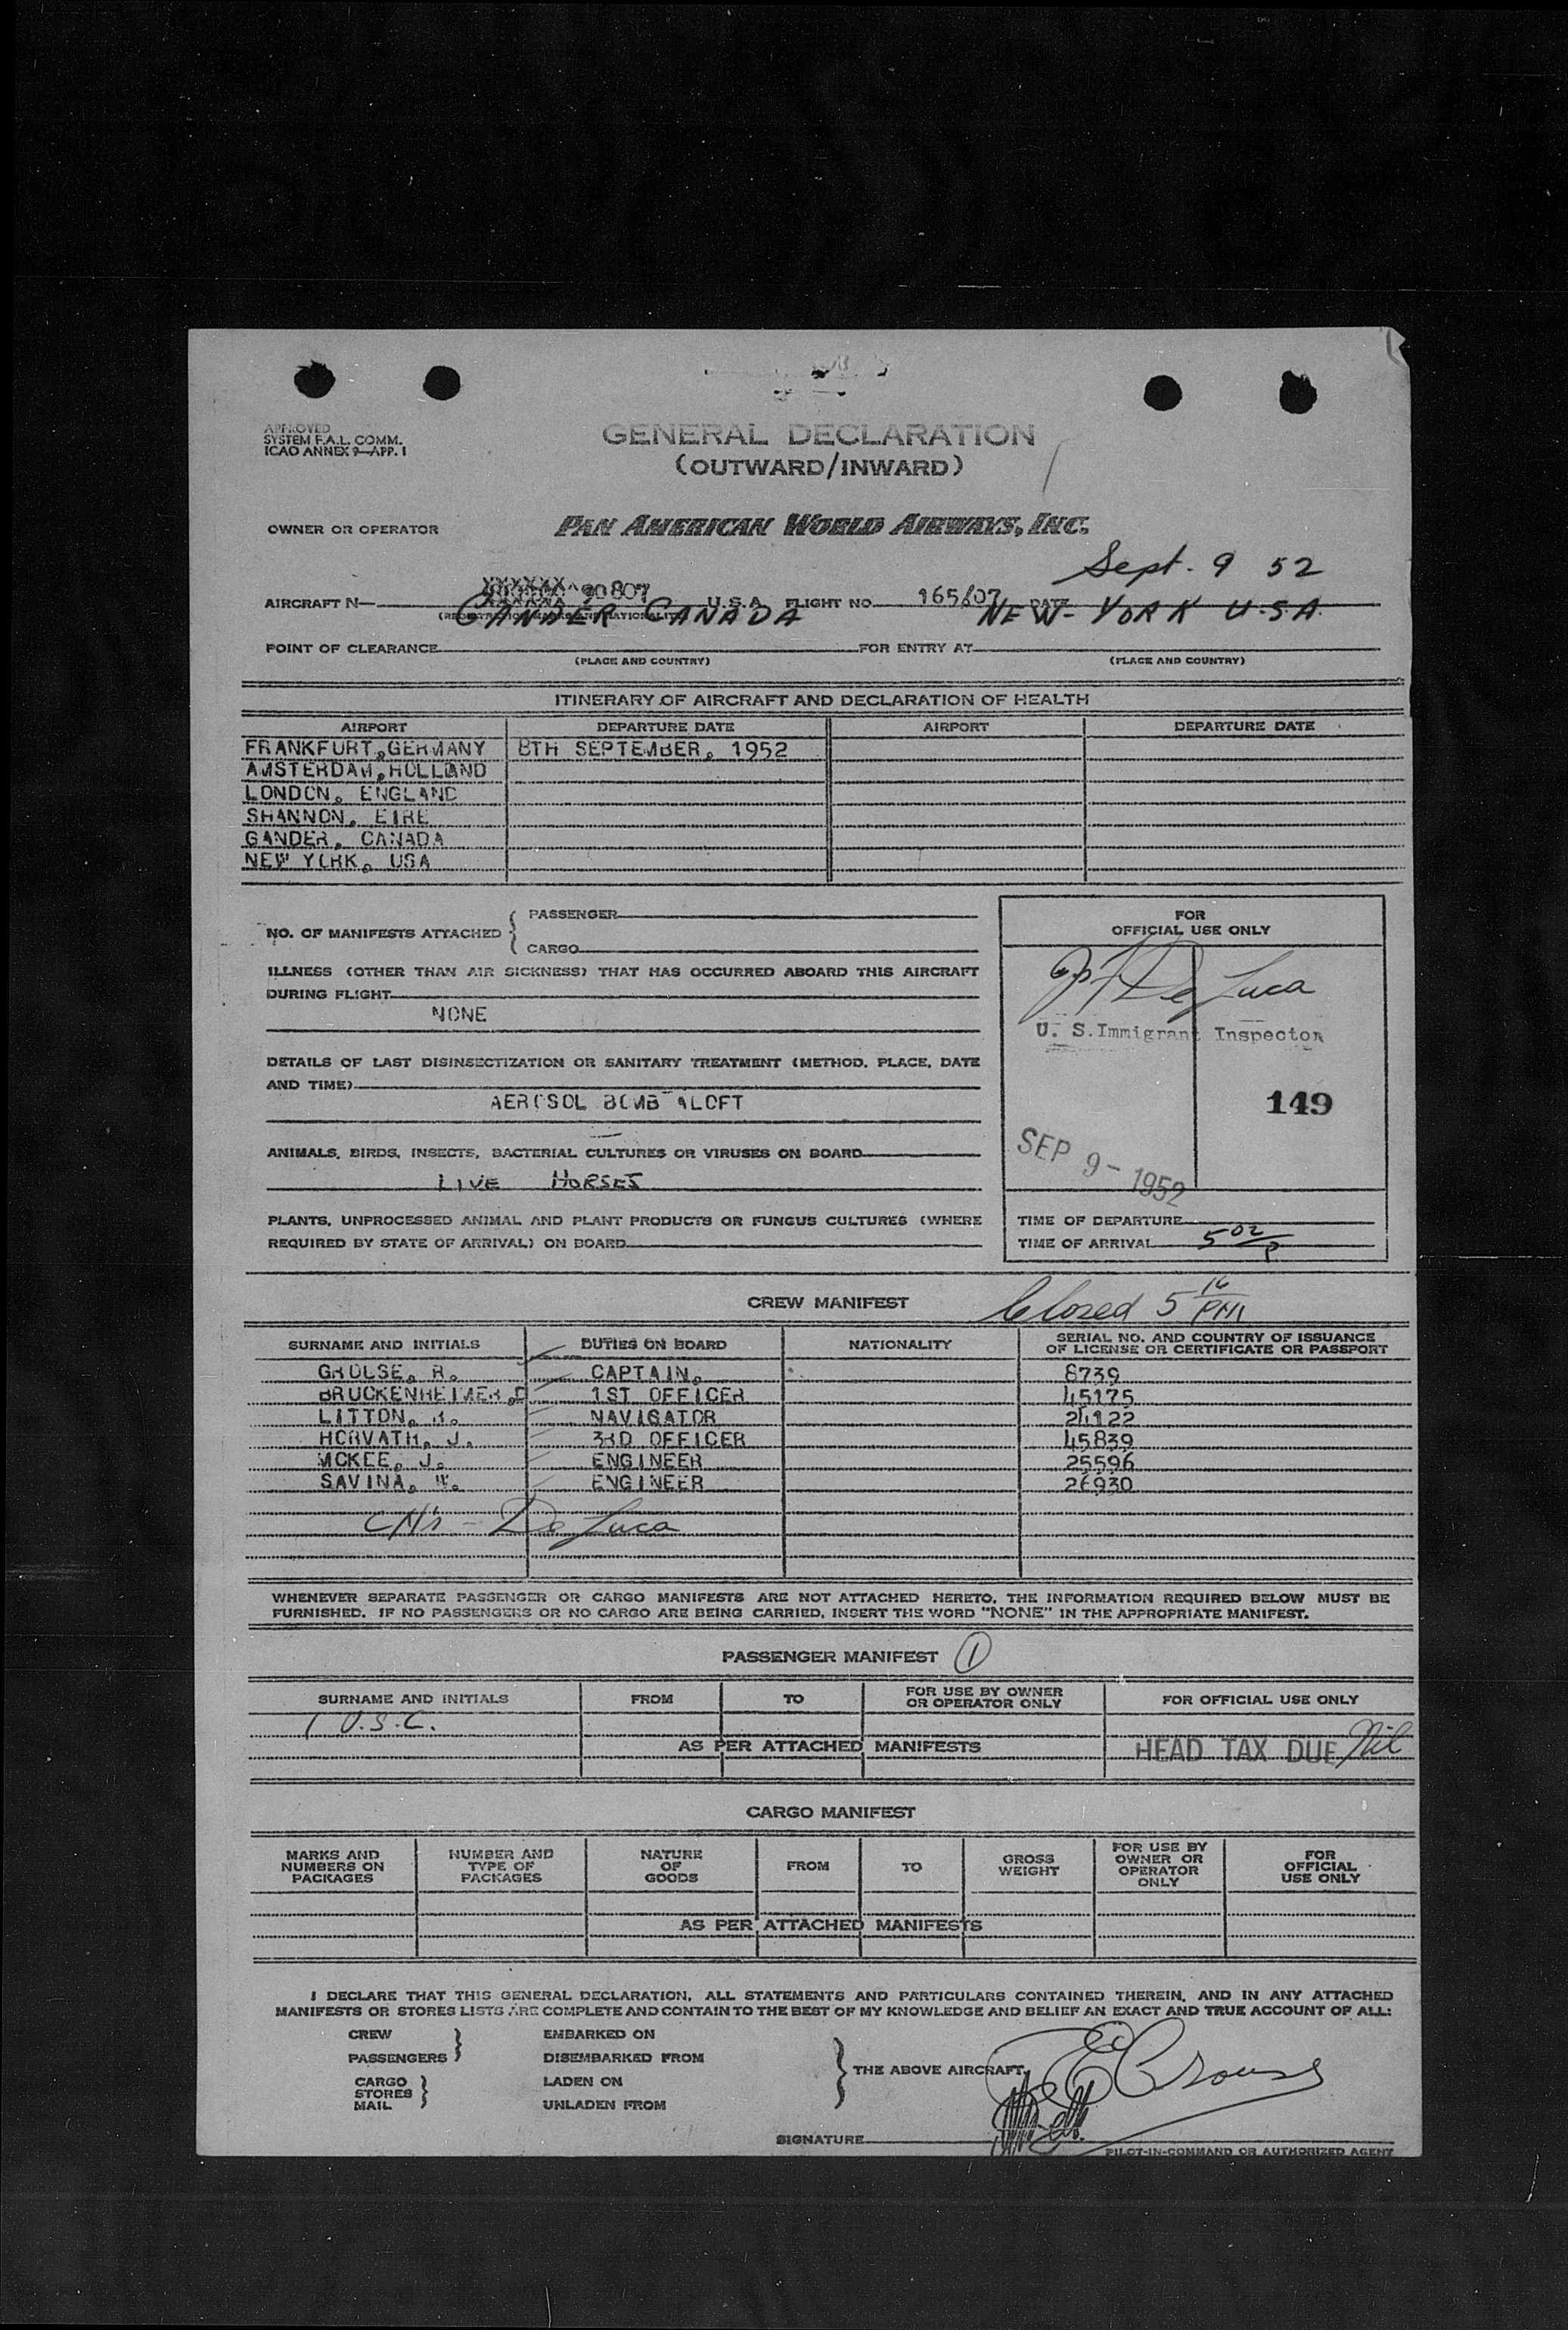 APPROVED
SYSTEM F.A.L. COMM.
ICAO ANNEX 9—APP. 1
GENERAL DECLARATION
(OUTWARD/INWARD)
OWNER OR OPERATOR PAN AMERICAN WORLD AIRWAYS, INC.
Sept. 9 52
AIRCRAFT N— 90807 U.S.A. FLIGHT NO. 165/07 DATE
GANDER CANADA NEW-YORK U.S.A.
POINT OF CLEARANCE FOR ENTRY AT
(PLACE AND COUNTRY) (PLACE AND COUNTRY)
ITINERARY OF AIRCRAFT AND DECLARATION OF HEALTH
AIRPORT DEPARTURE DATE AIRPORT DEPARTURE DATE
FRANKFURT,GERMANY 8TH SEPTEMBER, 1952
AMSTERDAM,HOLLAND
LONDON, ENGLAND
SHANNON, EIRE
GANDER, CANADA
NEW YORK, USA
NO. OF MANIFESTS ATTACHED { PASSENGER
CARGO
ILLNESS (OTHER THAN AIR SICKNESS) THAT HAS OCCURRED ABOARD THIS AIRCRAFT
DURING FLIGHT
NONE
DETAILS OF LAST DISINSECTIZATION OR SANITARY TREATMENT (METHOD, PLACE, DATE
AND TIME)
AEROSOL BOMB ALOFT
ANIMALS, BIRDS, INSECTS, BACTERIAL CULTURES OR VIRUSES ON BOARD
LIVE HORSES
PLANTS, UNPROCESSED ANIMAL AND PLANT PRODUCTS OR FUNGUS CULTURES (WHERE
REQUIRED BY STATE OF ARRIVAL) ON BOARD
FOR
OFFICIAL USE ONLY
De Luca
U. S. Immigrant Inspector
149
SEP 9 - 1952
TIME OF DEPARTURE
TIME OF ARRIVAL 5 02 P
CREW MANIFEST Closed 5 16 PM
SURNAME AND INITIALS DUTIES ON BOARD NATIONALITY SERIAL NO. AND COUNTRY OF ISSUANCE
OF LICENSE OR CERTIFICATE OR PASSPORT
GROUSE, R. CAPTAIN, 8739
BRUCKENHEIMER, 1ST OFFICER 45175
LITTON, NAVIGATOR 24122
HORVATH, J. 3RD OFFICER 45839
MCKEE, J. ENGINEER 25596
SAVINA, W. ENGINEER 26930
De Luca
WHENEVER SEPARATE PASSENGER OR CARGO MANIFESTS ARE NOT ATTACHED HERETO, THE INFORMATION REQUIRED BELOW MUST BE
FURNISHED. IF NO PASSENGERS OR NO CARGO ARE BEING CARRIED, INSERT THE WORD "NONE" IN THE APPROPRIATE MANIFEST.
PASSENGER MANIFEST 1
SURNAME AND INITIALS FROM TO FOR USE BY OWNER
OR OPERATOR ONLY FOR OFFICIAL USE ONLY
1 U.S.C.
AS PER ATTACHED MANIFESTS HEAD TAX DUE Nil
CARGO MANIFEST
MARKS AND
NUMBERS ON
PACKAGES
NUMBER AND
TYPE OF
PACKAGES
NATURE
OF
GOODS
FROM
TO
GROSS
WEIGHT
FOR USE BY
OWNER OR
OPERATOR
ONLY
FOR
OFFICIAL
USE ONLY
AS PER ATTACHED MANIFESTS
I DECLARE THAT THIS GENERAL DECLARATION, ALL STATEMENTS AND PARTICULARS CONTAINED THEREIN, AND IN ANY ATTACHED
MANIFESTS OR STORES LISTS ARE COMPLETE AND CONTAIN TO THE BEST OF MY KNOWLEDGE AND BELIEF AN EXACT AND TRUE ACCOUNT OF ALL:
CREW } EMBARKED ON
PASSENGERS DISEMBARKED FROM } THE ABOVE AIRCRAFT.
CARGO LADEN ON
STORES }
MAIL UNLADEN FROM
SIGNATURE
PILOT-IN-COMMAND OR AUTHORIZED AGENT